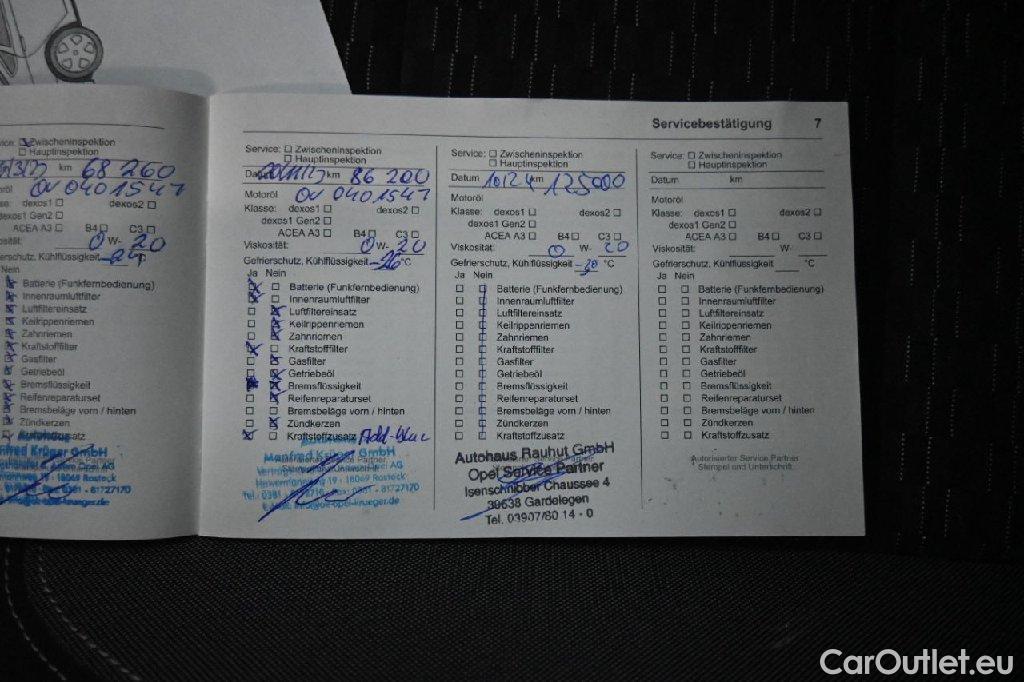 Servicebestätigung 7
☒ Zwischeninspektion
☐ Hauptinspektion
km 68 260
OV 0401547
Klasse: dexos1 ☐ dexos2 ☐
dexos1 Gen2 ☐
ACEA A3 ☐ B4 ☐ C3 ☐
0 W- 20
Gefrierschutz, Kühlflüssigkeit
Nein
Batterie (Funkfernbedienung)
Innenraumluftfilter
Luftfiltereinsatz
Keilrippenriemen
Zahnriemen
Kraftstofffilter
Gasfilter
Getriebeöl
Bremsflüssigkeit
Reifenreparaturset
Bremsbeläge vorn / hinten
Zündkerzen
Manfred Krüger GmbH
19 - 18069 Rostock
Service: ☐ Zwischeninspektion
☐ Hauptinspektion
km 86 200
Motoröl OV 0401547
Klasse: dexos1 ☐ dexos2 ☐
dexos1 Gen2 ☐
ACEA A3 ☐ B4 ☐ C3 ☐
Viskosität: 0 W- 20
Gefrierschutz, Kühlflüssigkeit -26 °C
Ja Nein
☒ ☐ Batterie (Funkfernbedienung)
☒ ☐ Innenraumluftfilter
☐ ☒ Luftfiltereinsatz
☐ ☒ Keilrippenriemen
☐ ☒ Zahnriemen
☒ ☐ Kraftstofffilter
☐ ☒ Gasfilter
☐ ☒ Getriebeöl
Bremsflüssigkeit
☐ ☒ Reifenreparaturset
☐ ☐ Bremsbeläge vorn / hinten
☐ ☒ Zündkerzen
☒ ☐ Kraftstoffzusatz Add-blue
Manfred Krüger GmbH
19 - 18069 Rostock
Service: ☐ Zwischeninspektion
☐ Hauptinspektion
Datum 10.12.24 km 125000
Motoröl
Klasse: dexos1 ☐ dexos2 ☐
dexos1 Gen2 ☐
ACEA A3 ☐ B4 ☐ C3 ☐
Viskosität: 0 W- 20
Gefrierschutz, Kühlflüssigkeit -30 °C
Ja Nein
☐ ☐ Batterie (Funkfernbedienung)
☐ ☐ Innenraumluftfilter
☐ ☐ Luftfiltereinsatz
☐ ☐ Keilrippenriemen
☐ ☐ Zahnriemen
☐ ☐ Kraftstofffilter
☐ ☐ Gasfilter
☐ ☐ Getriebeöl
☐ ☐ Bremsflüssigkeit
☐ ☐ Reifenreparaturset
☐ ☐ Bremsbeläge vorn / hinten
☐ ☐ Zündkerzen
☐ ☐ Kraftstoffzusatz
Autohaus Rauhut GmbH
Opel Service Partner
Isenschnibber Chaussee 4
39638 Gardelegen
Tel. 03907/80 14 - 0
Service: ☐ Zwischeninspektion
☐ Hauptinspektion
Datum km
Motoröl
Klasse: dexos1 ☐ dexos2 ☐
dexos1 Gen2 ☐
ACEA A3 ☐ B4 ☐ C3 ☐
Viskosität: W-
Gefrierschutz, Kühlflüssigkeit °C
Ja Nein
☐ ☐ Batterie (Funkfernbedienung)
☐ ☐ Innenraumluftfilter
☐ ☐ Luftfiltereinsatz
☐ ☐ Keilrippenriemen
☐ ☐ Zahnriemen
☐ ☐ Kraftstofffilter
☐ ☐ Gasfilter
☐ ☐ Getriebeöl
☐ ☐ Bremsflüssigkeit
☐ ☐ Reifenreparaturset
☐ ☐ Bremsbeläge vorn / hinten
☐ ☐ Zündkerzen
☐ ☐ Kraftstoffzusatz
Autorisierter Service Partner
Stempel und Unterschrift
CarOutlet.eu